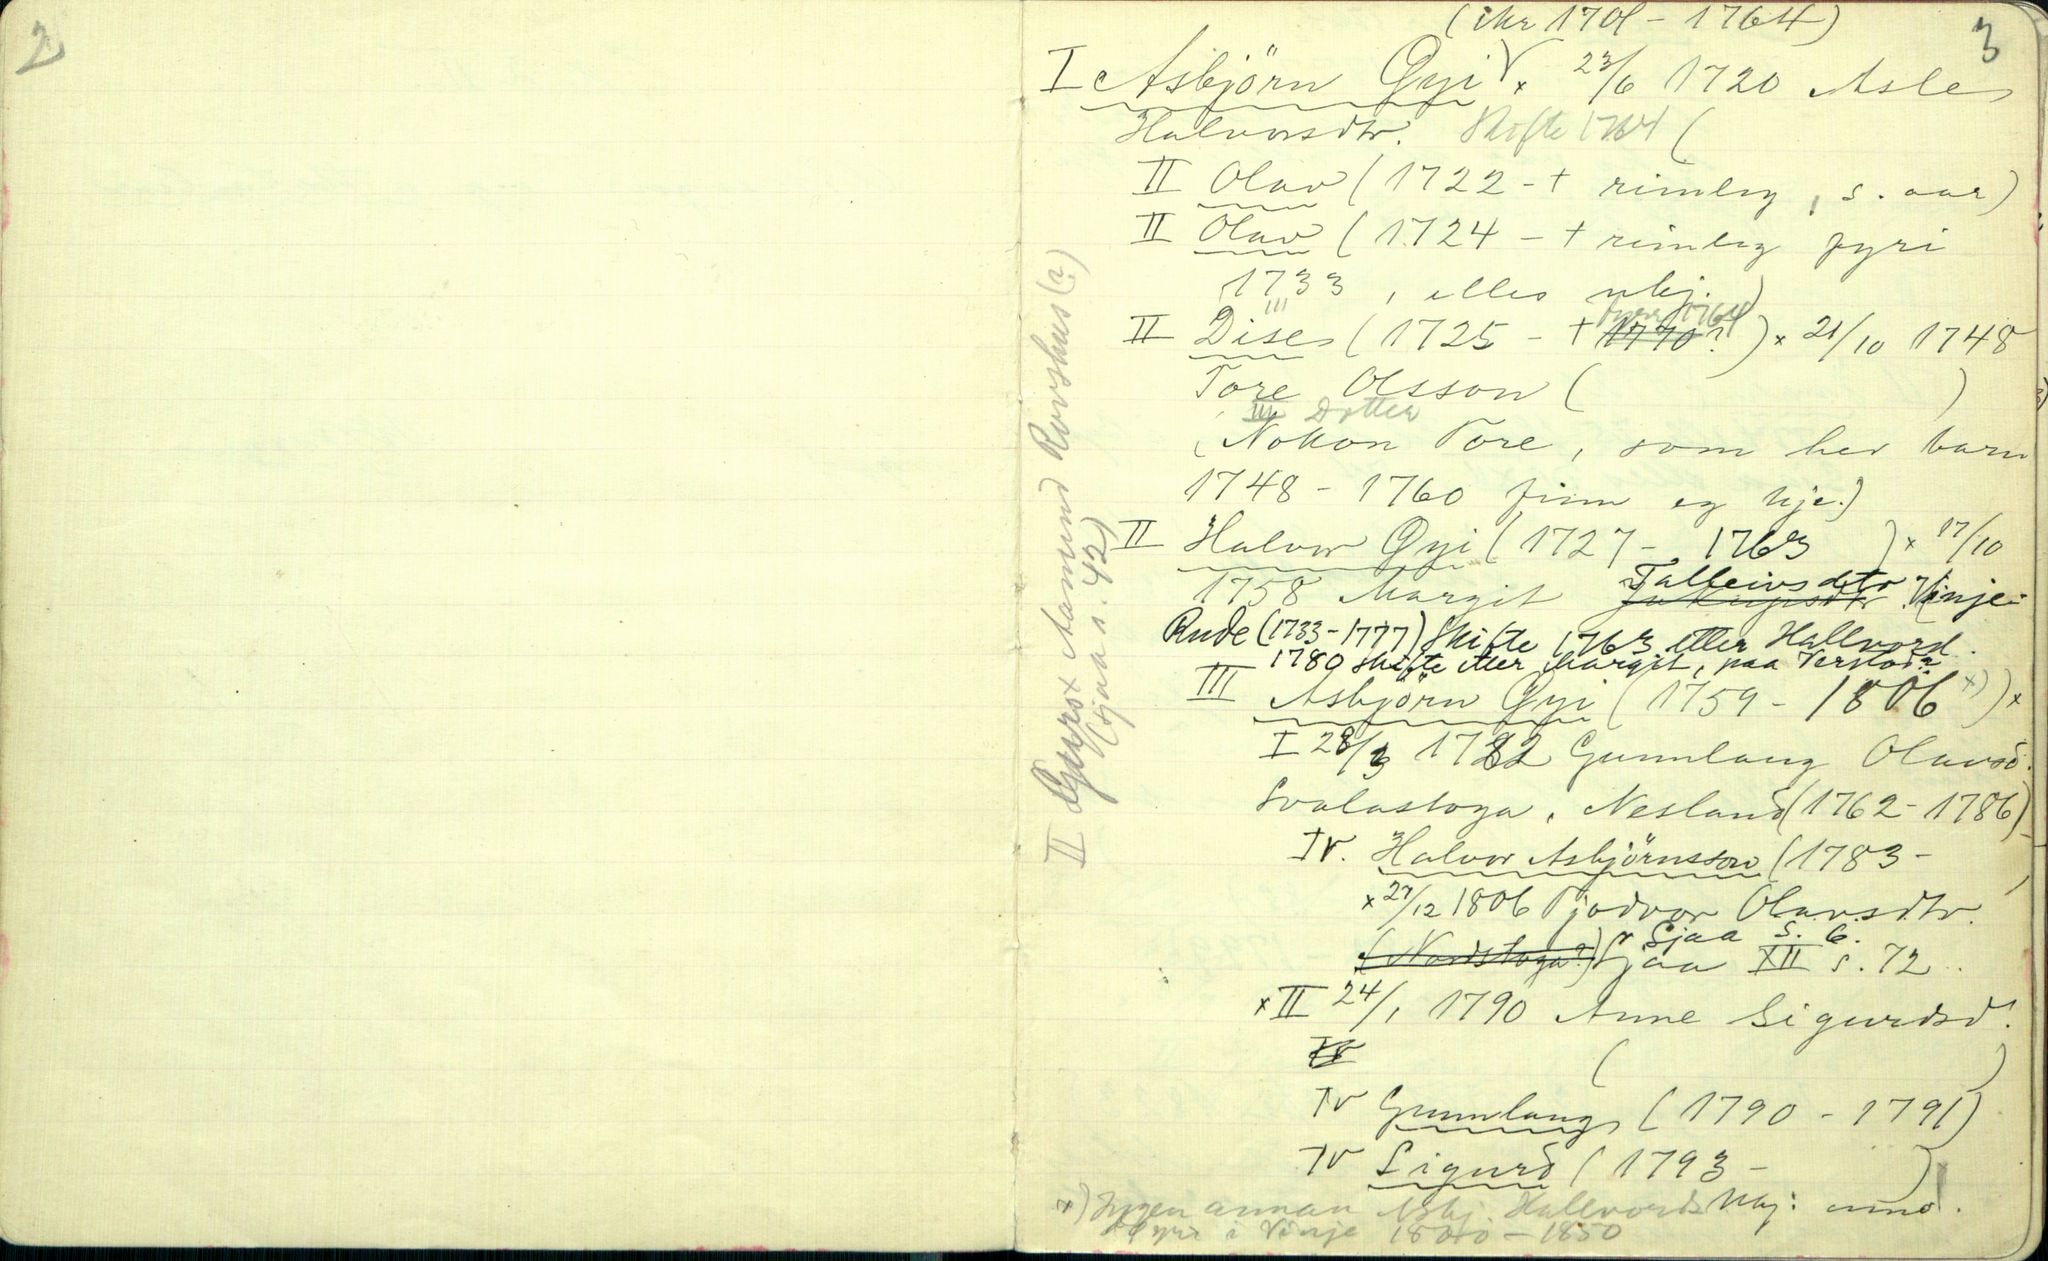 2
3
(ikr 1701 - 1764)
I Asbjörn Gyi x 23/6 1720 Asle
Halvorsdtr. Skifte 1764 (
II Olav (1722 - + rimleg, s. aar)
II Olav (1724 - + rimleg fyri
1733, elles ukj.)
III
II Dise (1725 - + 1770?) x 21/10 1748
fyrr 1764
Tore Olsson ( )
III Dotter
(Nokon Tore, som hev barn
1748 - 1760 finn eg kje.)
II Halvor Gyi (1727 - 1763 ) x 17/10
1758 Margit Talleivsdtr Vinje-
Rude (1733-1777) Skifte 1763 etter Hallvord.
1780 skifte etter Margit, paa
III Asbjörn Gyi (1759 - 1806 x)) x
I 28/3 1782 Gunnlaug Olavsd.
Svalastoga, Nesland (1762 - 1786)
IV. Halvor Asbjörnsson (1783 -
x 27/12 1806 Tjodvor Olavsdtr. )
Sjaa s. 6.
(Nordstoga?) Sjaa XII s. 72.
x II 24/1 1790 Anne Sigurdsd.
IV ( )
IV Gunnlaug (1790 - 1791)
IV Sigurd (1793 - )
Ukj: anno.
x) Ingen annan Asbj. Hallvords
i Vinje 1800 - 1850
II Gyro x Aamund Rovshus (?)
(sjaa s. 42)